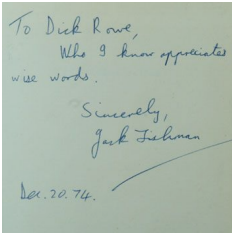 To Dick Rowe,
Who I know appreciates
wise words.
Sincerely,
Jack Lishman
Dec. 20. 74.